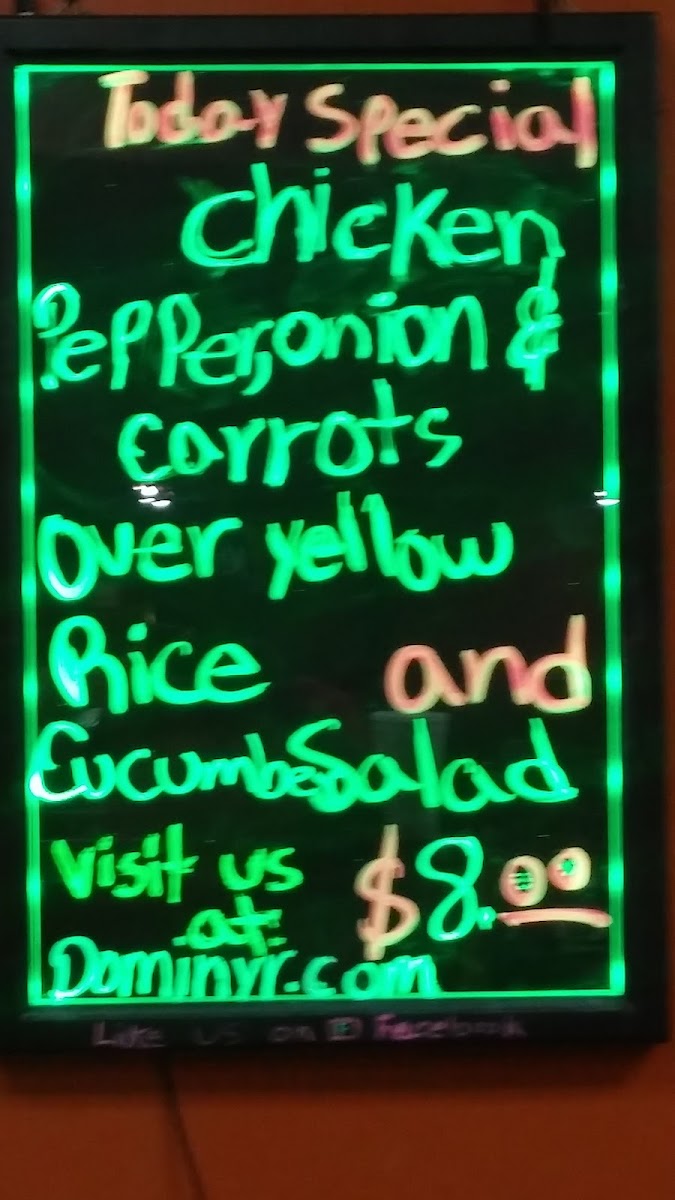 Today Special
chicken,
Pepper, onion &
carrots
over yellow
Rice and
Cucumber Salad
visit us $8.00
at:
Dominyr.com
Like us on Facebook